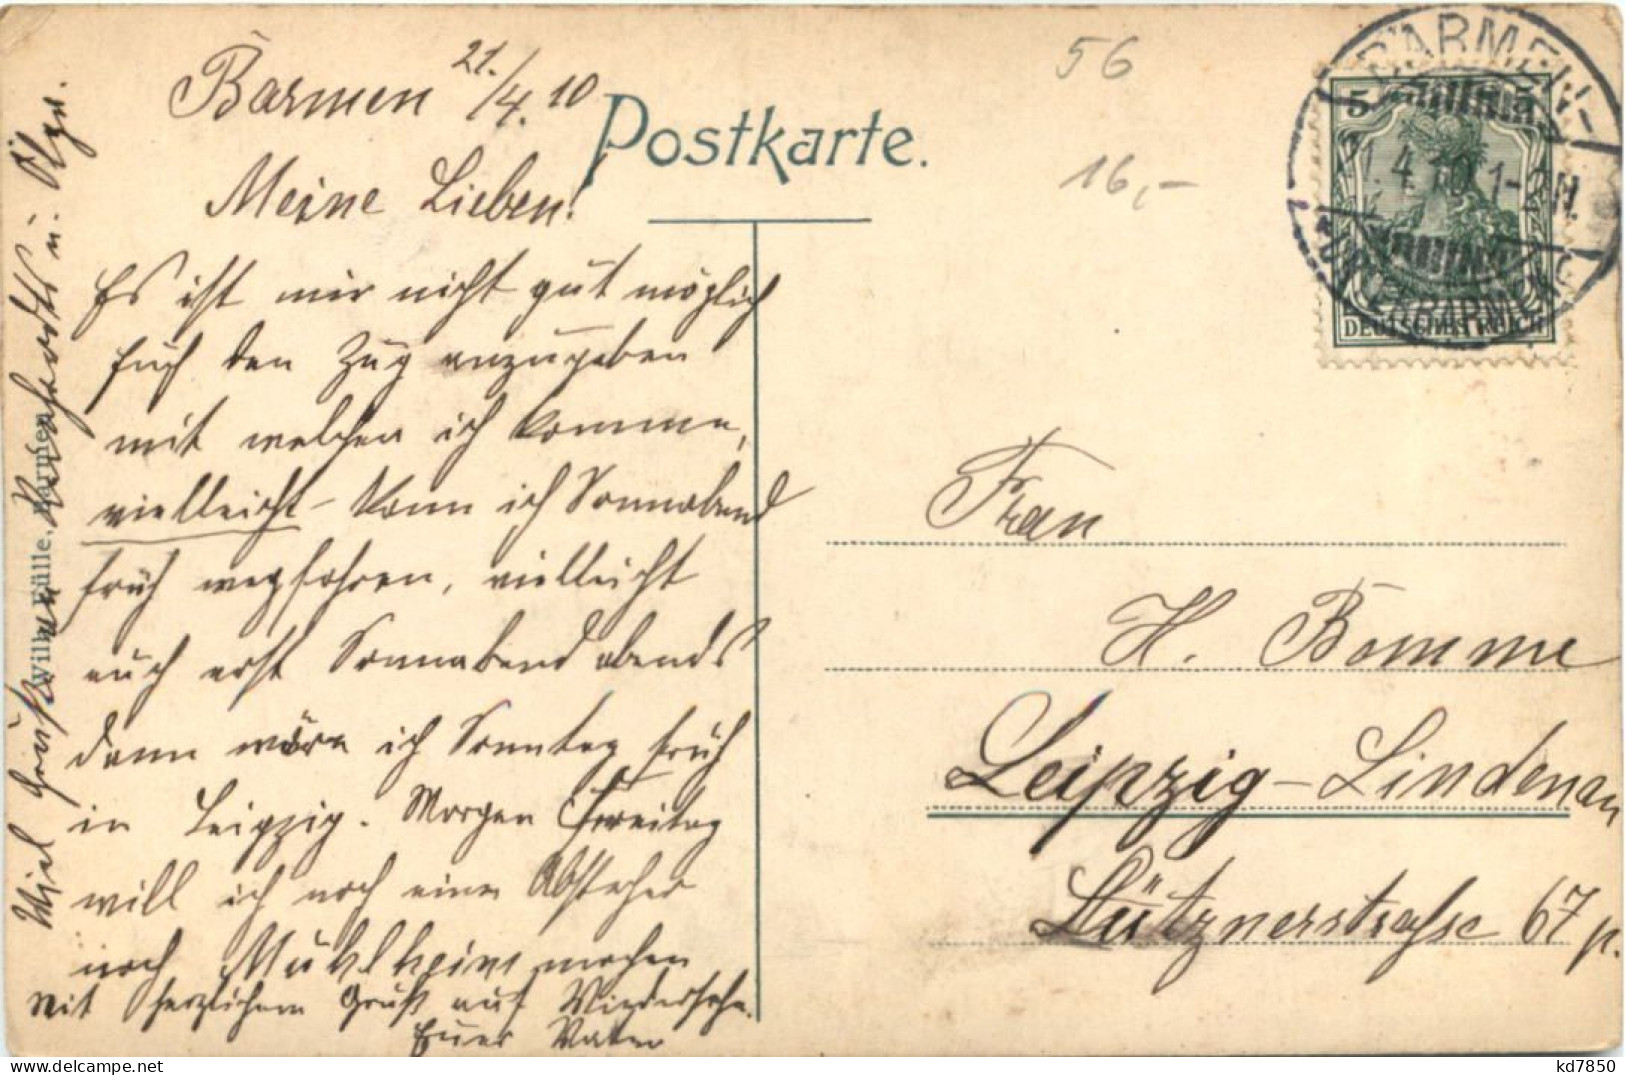 Barmen 21./4. 10
Postkarte.
Meine Lieben!
Es ist mir nicht gut möglich
Euch den Zug anzugeben
mit welchen ich komme,
vielleicht kann ich Sonnabend
früh wegfahren, vielleicht
auch erst Sonnabend abends
dann wäre ich Sonntag früh
in Leipzig. Morgen Freitag
will ich noch einen Abstecher
nach Mühlheim machen
Mit herzlichem Gruß auf Wiedersehn.
Euer Vater
Viel Grüße von u. Olga.
Wilh. Fülle, Barmen
56
16,-
BARMEN-
UNTERBARMEN
4. 10. 1-
5 5
DEUTSCHES REICH
Frau
H. Bomme
Leipzig-Lindenau
Lütznerstrasse 67 p.
kd7850